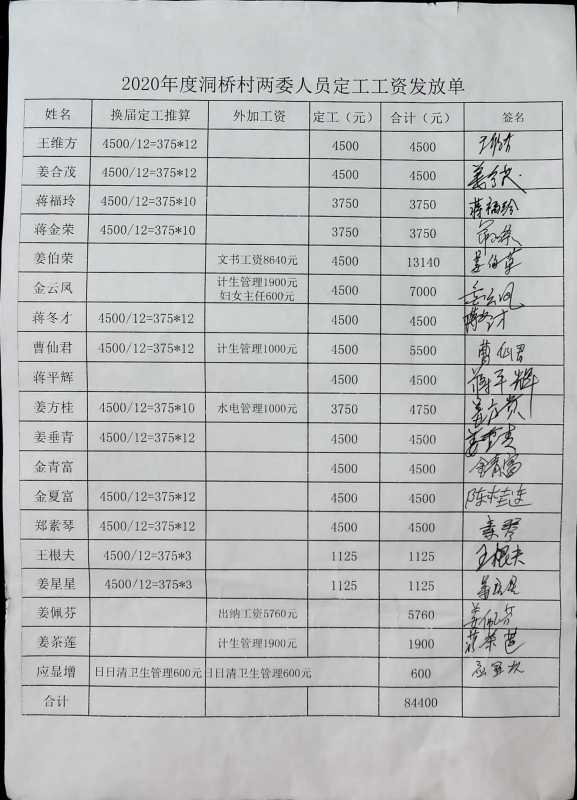 2020年度洞桥村两委人员定工工资发放单
姓名 换届定工推算 外加工资 定工（元） 合计（元） 签名
王维方 4500/12=375*12 4500 4500
姜合茂 4500/12=375*12 4500 4500
蒋福玲 4500/12=375*10 3750 3750 蒋福玲
蒋金荣 4500/12=375*10 3750 3750
姜伯荣 文书工资8640元 4500 13140
金云凤 计生管理1900元 4500 7000
妇女主任600元
蒋冬才 4500/12=375*12 4500 4500
曹仙君 4500/12=375*12 计生管理1000元 4500 5500 曹仙君
蒋平辉 4500 4500 蒋平辉
姜方桂 4500/12=375*10 水电管理1000元 3750 4750
姜垂青 4500/12=375*12 4500 4500
金青富 4500 4500 金青富
金夏富 4500/12=375*12 4500 4500
郑素琴 4500/12=375*12 4500 4500 素琴
王根夫 4500/12=375*3 1125 1125 王根夫
姜星星 4500/12=375*3 1125 1125
姜佩芬 出纳工资5760元 5760 姜佩芬
姜茶莲 计生管理1900元 1900
应显增 日日清卫生管理600元 日日清卫生管理600元 600
合计 84400